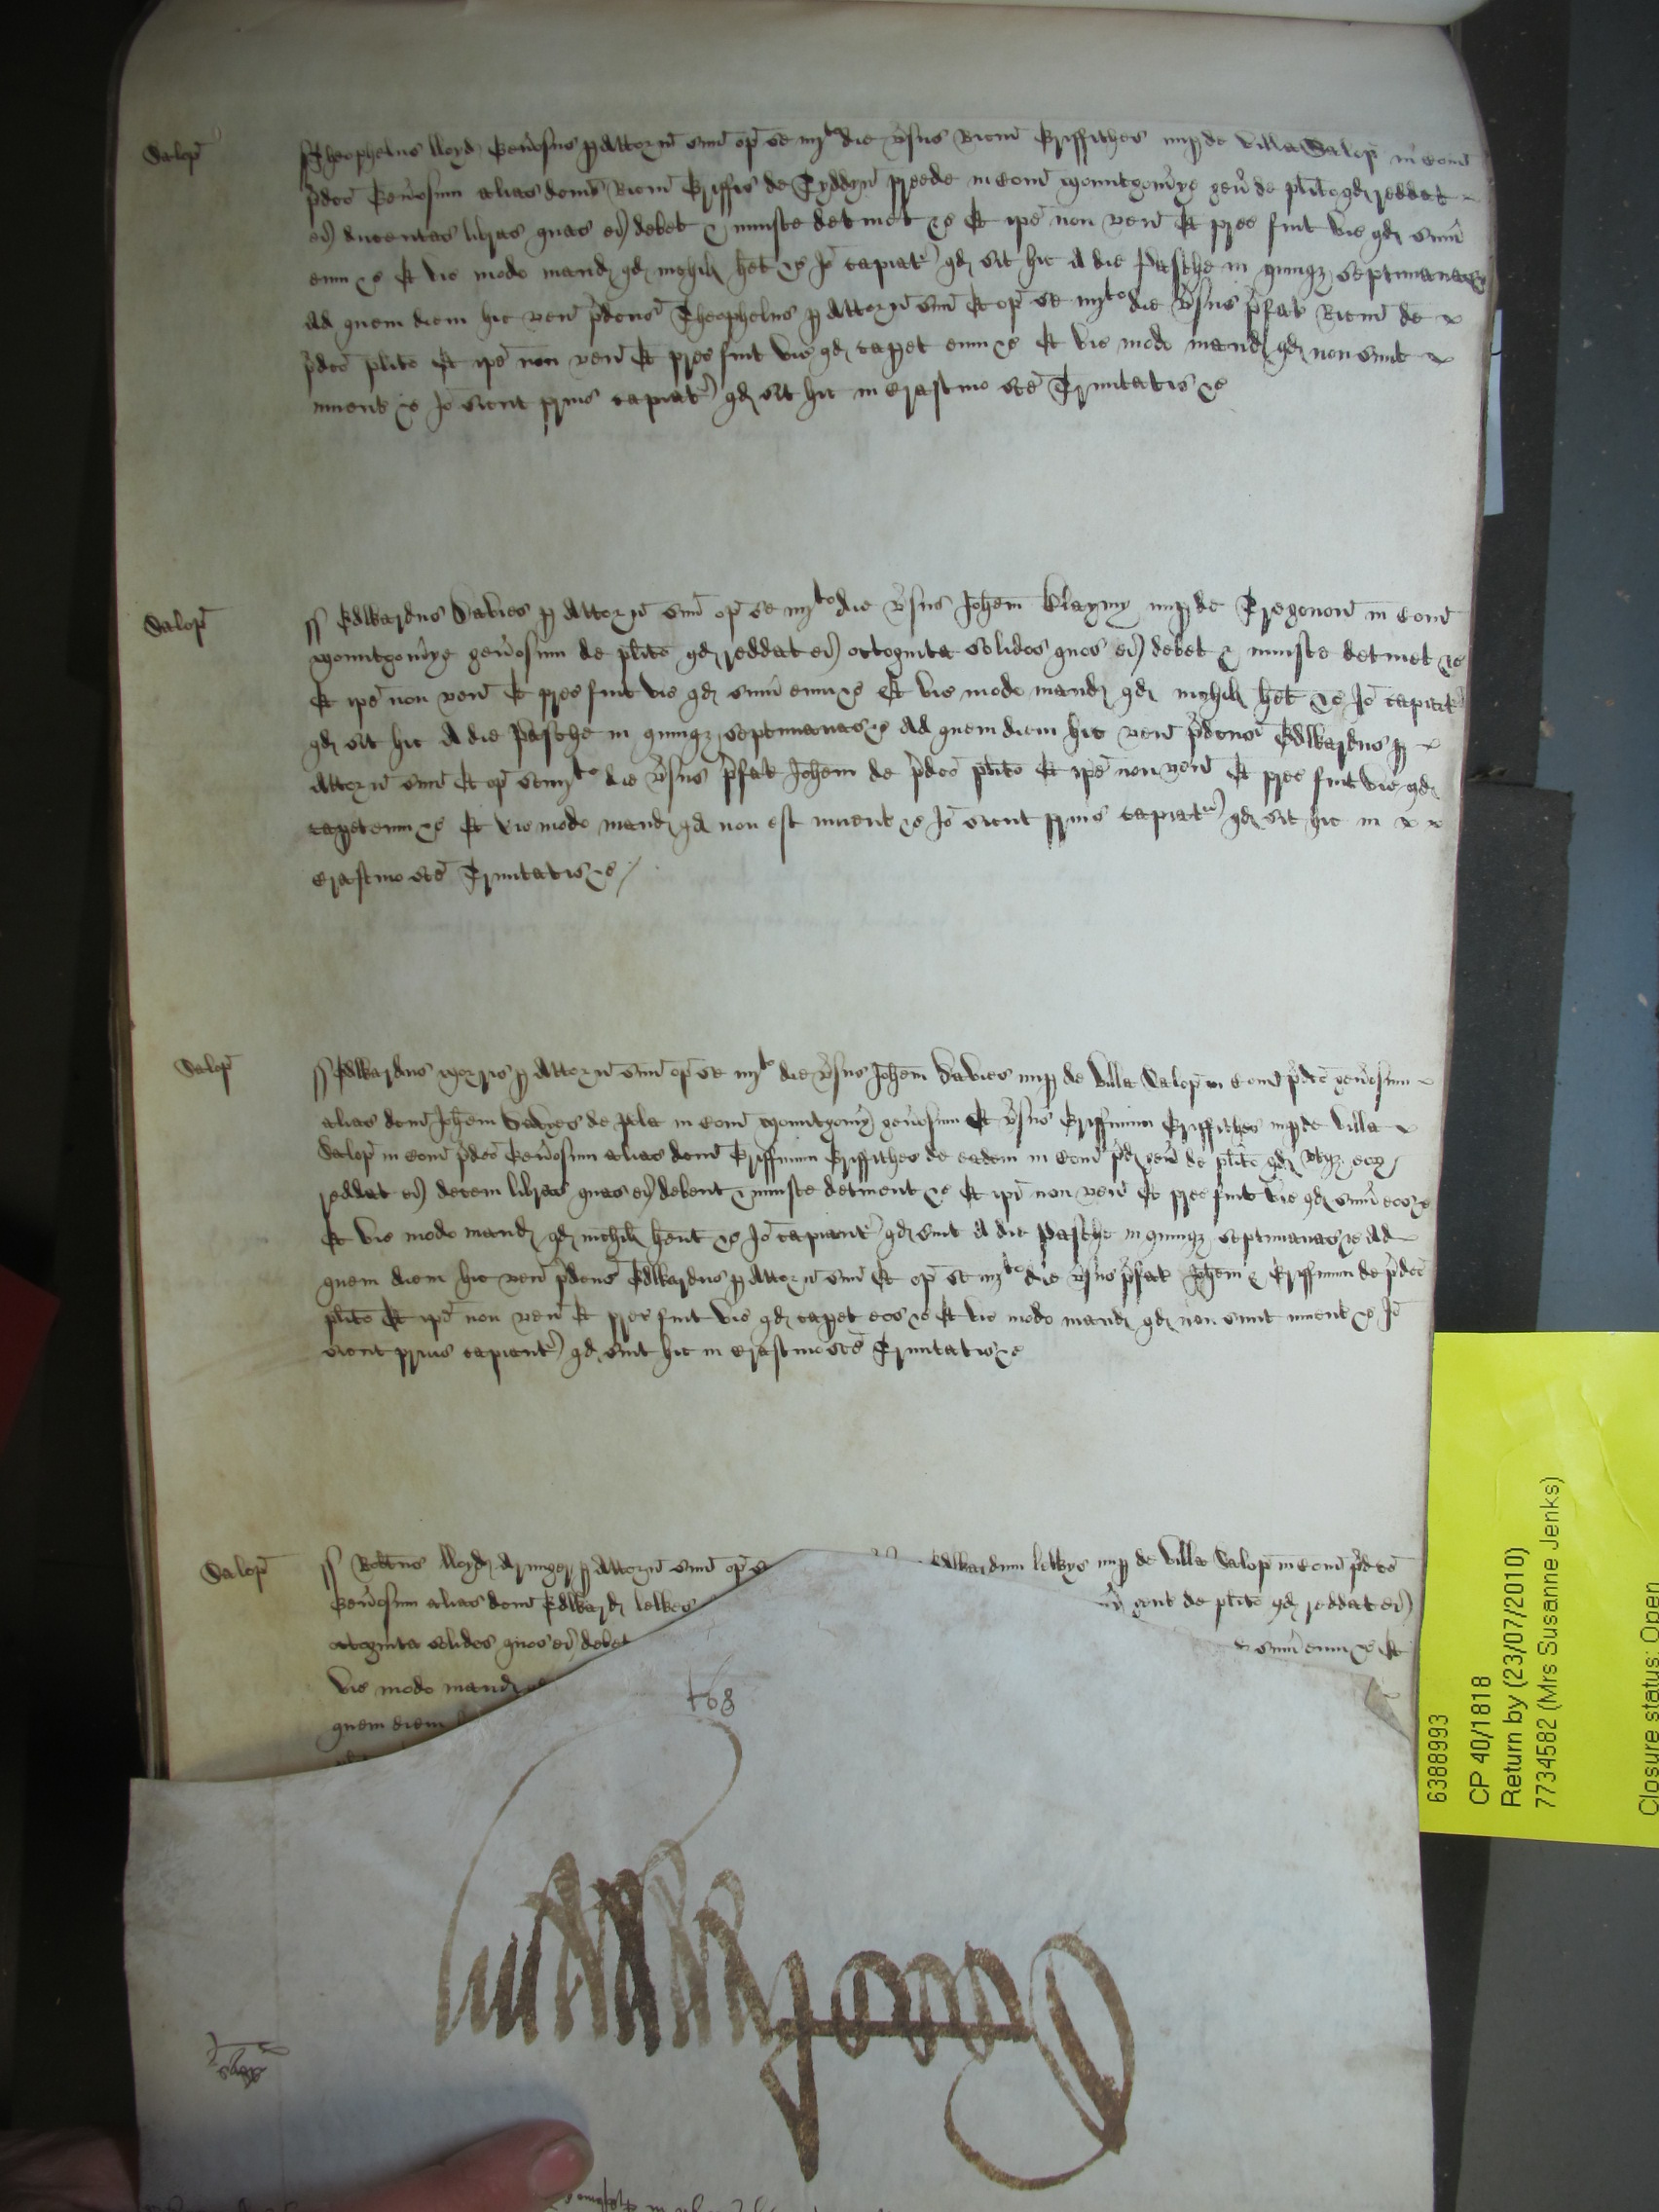 Salop
Theophelus lloyd Gen'osus p Attorn suu op se iiijto die v'sus Ricm Griffithes nup de villa Salop in Com
p'dco Gen'osum alias dcm Ricm Griffis de Tyddyn preede in Com Mountgom'ye gen' de plito qd reddat
ei ducentas libras quas ei debet & iniuste detinet &c Et ipe non ven Et prec fuit vic qd sum
eum &c Et vic modo mand qd nichil het &c Io capiat' qd sit hic A die Pasche in quinqz septimanas
Ad quem diem hic ven p'dcus Theophelus p Attorn suu Et op se iiijto die v'sus p'fat Ricm de
p'dco plito Et ipe non ven Et prec fuit vic qd capet eum &c Et vic modo mand qd non
invent &c Io sicut prius capiat' qd sit hic in Crastino sce Trinitatis &c
Salop
ss Edwardus Davies p Attorn suu op se iiijto die v'sus Johem nup de Tregonon in Com
Mountgom'ye gen'osum de plito qd reddat ei octoginta solidos quos ei debet & iniuste detinet &c
Et ipe non ven Et prec fuit vic qd sum eum &c Et vic modo mand qd nichil het &c Io capiat'
qd sit hic A die Pasche in quinqz septimanas &c Ad quem diem hic ven p'dcus Edwardus p
Attorn suu Et op se iiijto die v'sus p'fat Johem de p'dco plito Et ipe non ven Et prec fuit vic qd
capet eum &c Et vic modo mand qd non est invent &c Io sicut prius capiat' qd sit hic in
Crastino sce Trinitatis &c
Salop
ss Edwardus Morris p Attorn suu op se iiijto die v'sus Johem Davies nup de villa Salop in Com p'dco gen'osum
alias dcm Johem Davyes de Pola in Com Mountgom'y gen'osum Et v'sus Griffinum Griffithes nup de villa
Salop in Com p'dco Gen'osum alias dcm Griffinum Griffithes de eadem in Com p'd gen' de plito qd utqz eoz
reddat ei decem libras quas ei debent & iniuste detinent &c Et ipi non ven Et prec fuit vic qd sum eos &c
Et vic modo mand qd nichil hent &c Io capiant' qd sint A die Pasche in quinqz septimanas &c Ad
quem diem hic ven p'dcus Edwardus p Attorn suu Et op se iiijto die v'sus p'fat Johem & Griffinum de p'dco
plito Et ipi non ven Et prec fuit vic qd capet eos &c Et vic modo mand qd non sunt invent &c Io
sicut prius capiant' qd sint hic in Crastino sce Trinitatis &c
Salop
ss Robtus lloyd Armiger p Attorn suu op se Edwardum lewkys nup de villa Salop in Com p'dco
Gen'osum alias dcm Edward lewkes gent de plito qd reddat ei
octoginta solidos quos ei debet sum eum &c Et
vic modo mand
quem diem
168
6388993
CP 40/1818
Return by (23/07/2010)
7734582 (Mrs Susanne Jenks)
Closure status: Open